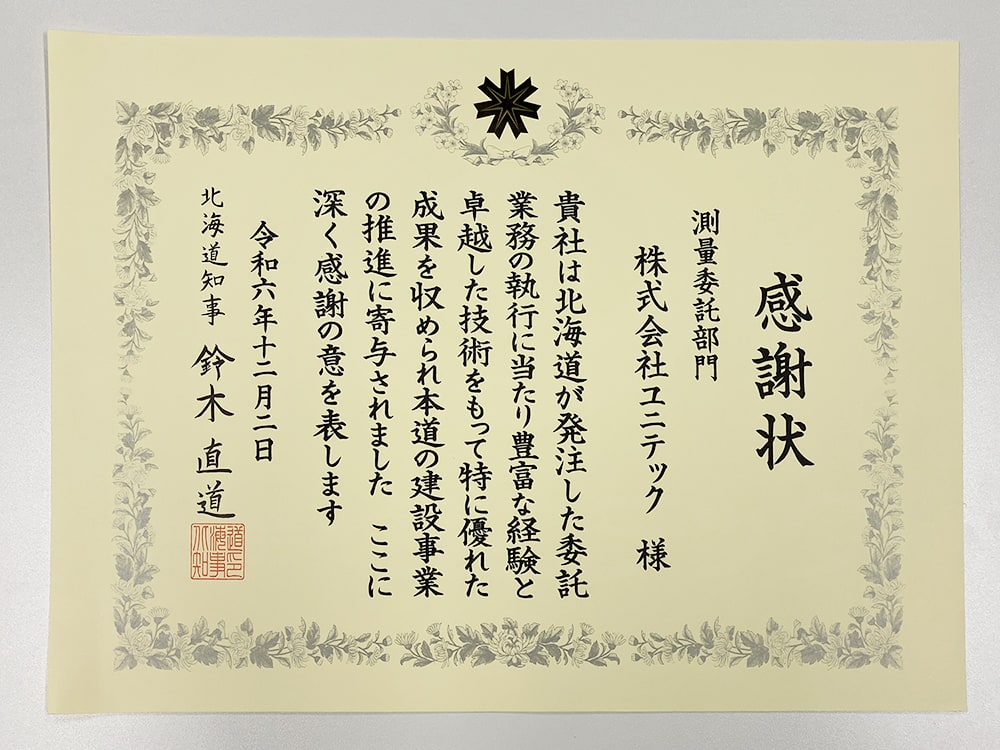 感謝状
測量委託部門
株式会社ユニテック 様
貴社は北海道が発注した委託
業務の執行に当たり豊富な経験と
卓越した技術をもって特に優れた
成果を収められ本道の建設事業
の推進に寄与されました ここに
深く感謝の意を表します
令和六年十二月二日
北海道知事 鈴木直道